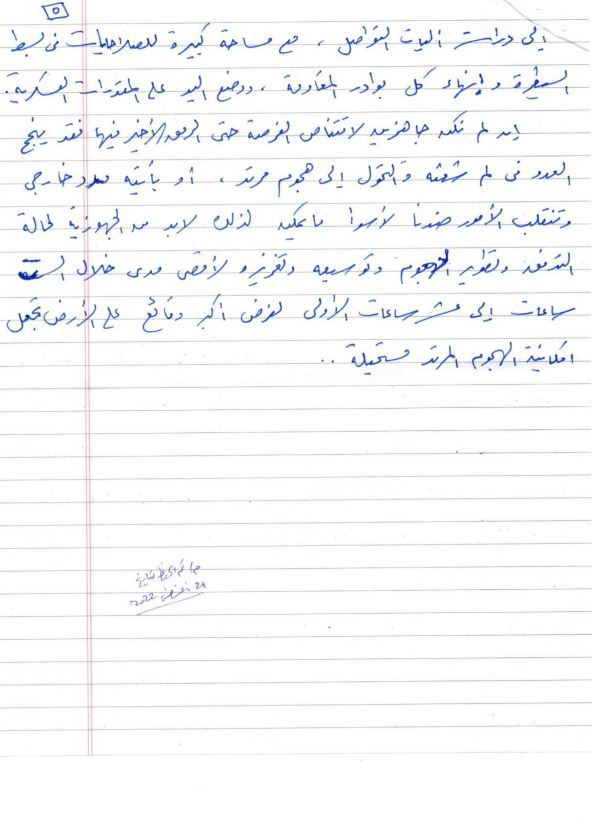 ٥
إلى دراسة آليات التواصل ، مع مساحة كبيرة للصلاحيات في بسط
السيطرة و إنهاء كل بوادر المقاومة ، ووضع اليد على المقدرات العسكرية.
إن لم نكن جاهزين لاقتناص الفرصة حتى الرمق الأخير فيها فقد ينجح
العدو في لم شعثه والتحول إلى هجوم مرتد ، أو يأتيه مدد خارجي
وتنقلب الأمور ضدنا لأسوأ ما يمكن لذلك لابد من الجهوزية لحالة
التدفق وتطوير الهجوم وتوسيعه وتعزيزه لأقصى مدى خلال الست
ساعات إلى عشر ساعات الأولى لفرض أكبر وقائع على الأرض تجعل
امكانية الهجوم المرتد مستحيلة ..
2022